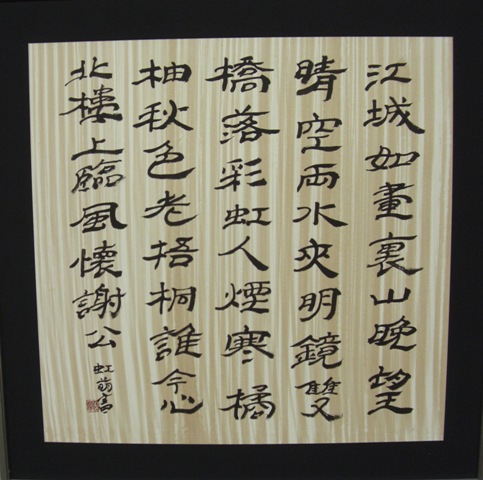 江城如畫裏山晚望
晴空兩水夾明鏡雙
橋落彩虹人煙寒橘
柚秋色老梧桐誰念
北樓上臨風懷謝公